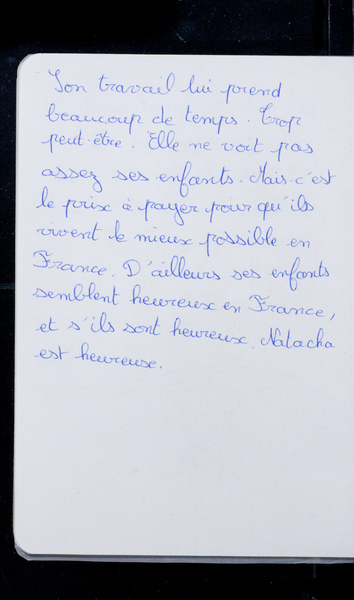 Son travail lui prend
beaucoup de temps. Trop
peut-être. Elle ne voit pas
assez ses enfants. Mais c'est
le prix à payer pour qu'ils
vivent le mieux possible en
France. D'ailleurs ses enfants
semblent heureux en France,
et s'ils sont heureux, Natacha
est heureuse.